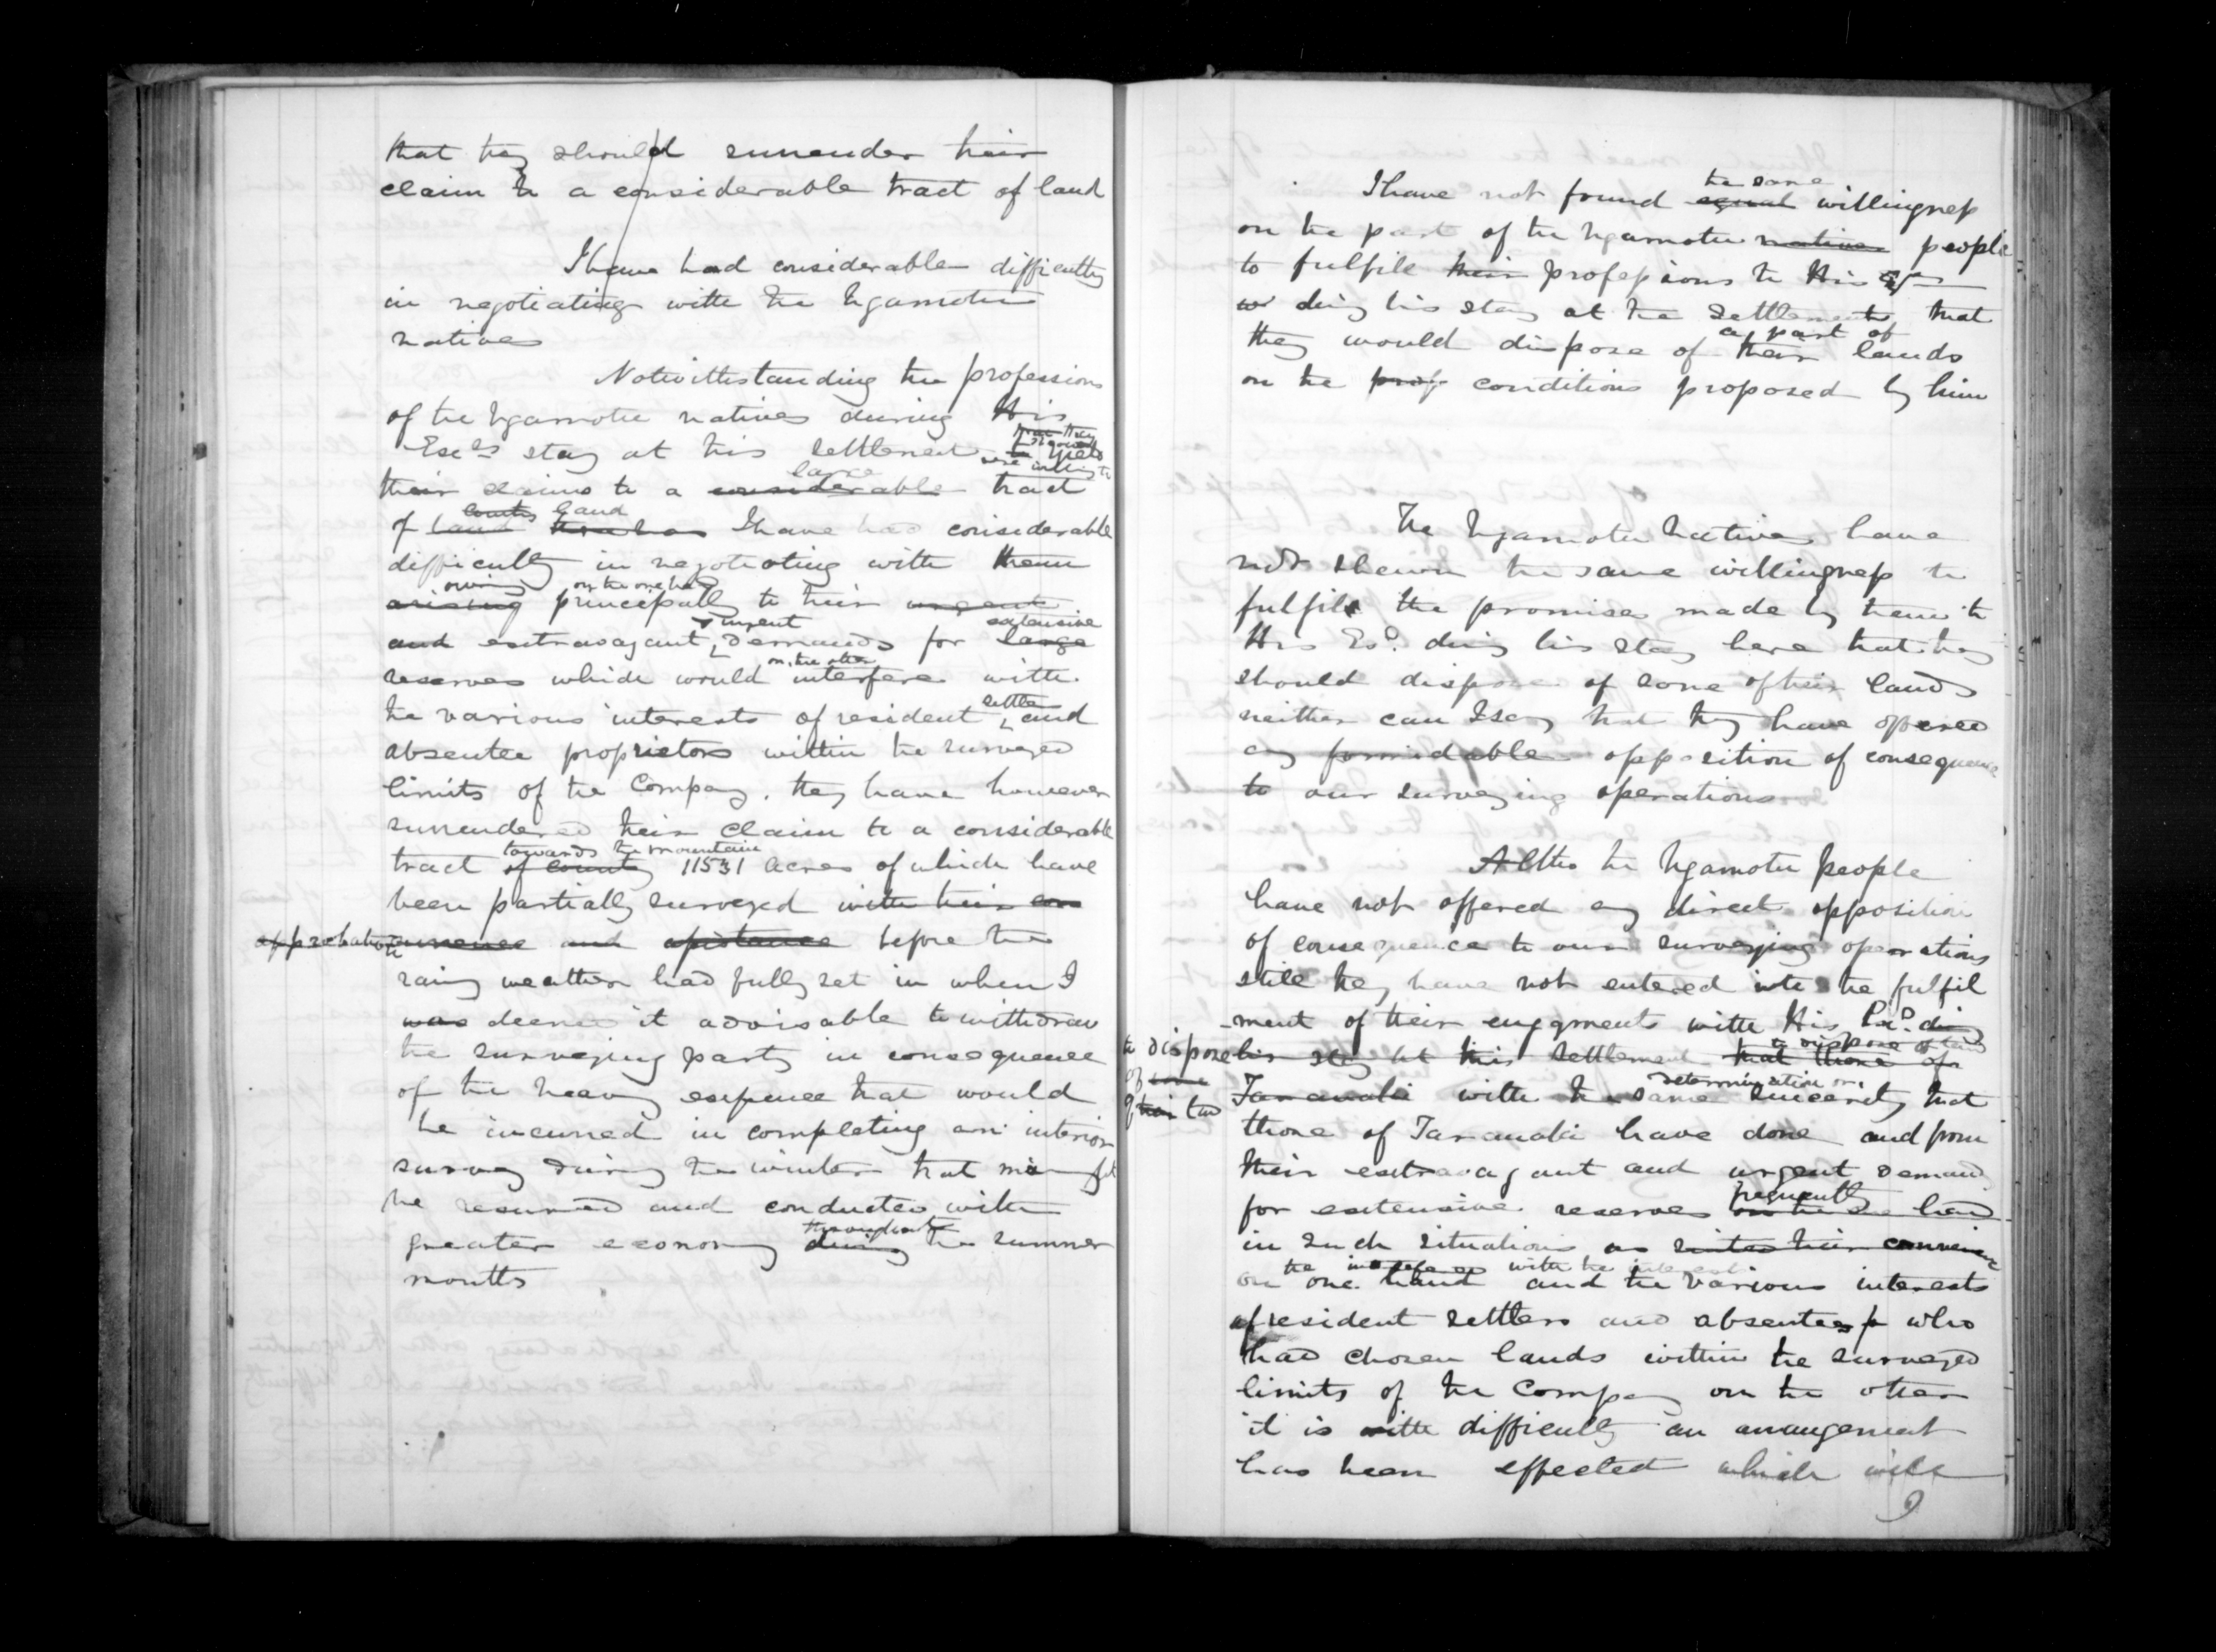 that they should surrender their
claim to a considerable tract of land
I have had considerable difficulty
in negotiating with the Ngamotu
natives
Notwithstanding the professions
of the Ngamotu natives during His
Excys stay at this settlement that they
were willing to
their claims to a considerable large tract
of land country land there has I have had considerable
difficulty in negotiating with them
arising owing principally on the one hand to their urgent
and extravagant & urgent demands for large extensive
reserves which would on the other interfere with
the various interests of resident settlers and
absentee proprietors within the surveyed
limits of the Company. They have however
surrendered their claim to a considerable
tract of country towards the mountain 11531 acres of which have
been partially surveyed with their con
approbation currence and assistance before the
rainy weather had fully set in when I
was deemed it advisable to withdraw
the surveying party in consequence
of the heavy expence that would
be incurred in completing an interior
survey during the winter that might
be resumed and conducted with
greater economy during throughout the summer
months
I have not found equal the same willingness
on the part of the Ngamotu natives people
to fulfil their professions to His Ex
duing his stay at the Settlement, that
they would dispose of a part of their lands
on the prop conditions proposed by him
The Ngamotu Natives have
not shewn the same willingness to
fulfil the promises made by them to
His Ex. duing his stay here that they
should dispose of some of their lands
neither can I say that they have offered
any formidable opposition of consequence
to our surveying operations
Altho the Ngamotu people
have not offered any direct opposition
of consequence to our surveying operations
still they have not entered into the fulfil
-ment of their engagments with His Ex. duing
to dispose his stay at this settlement to dispose of land that those of
of some
of their land Taranaki with the same determination or sincerity that
those of Taranaki have done and from
their extravagant and urgent demand
for extensive reserves frequently on the one hand
in such situations as suited their convenience
the interferes with the interests
on one hand and the various interests
of resident settlers and absentees p who
had chosen lands within the surveyed
limits of the Company on the other
it is with difficulty an arrangement
has been effected which will
9